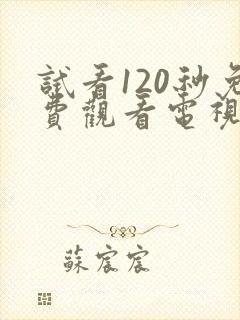 試看120秒免
費觀看電視
蘇宸宸